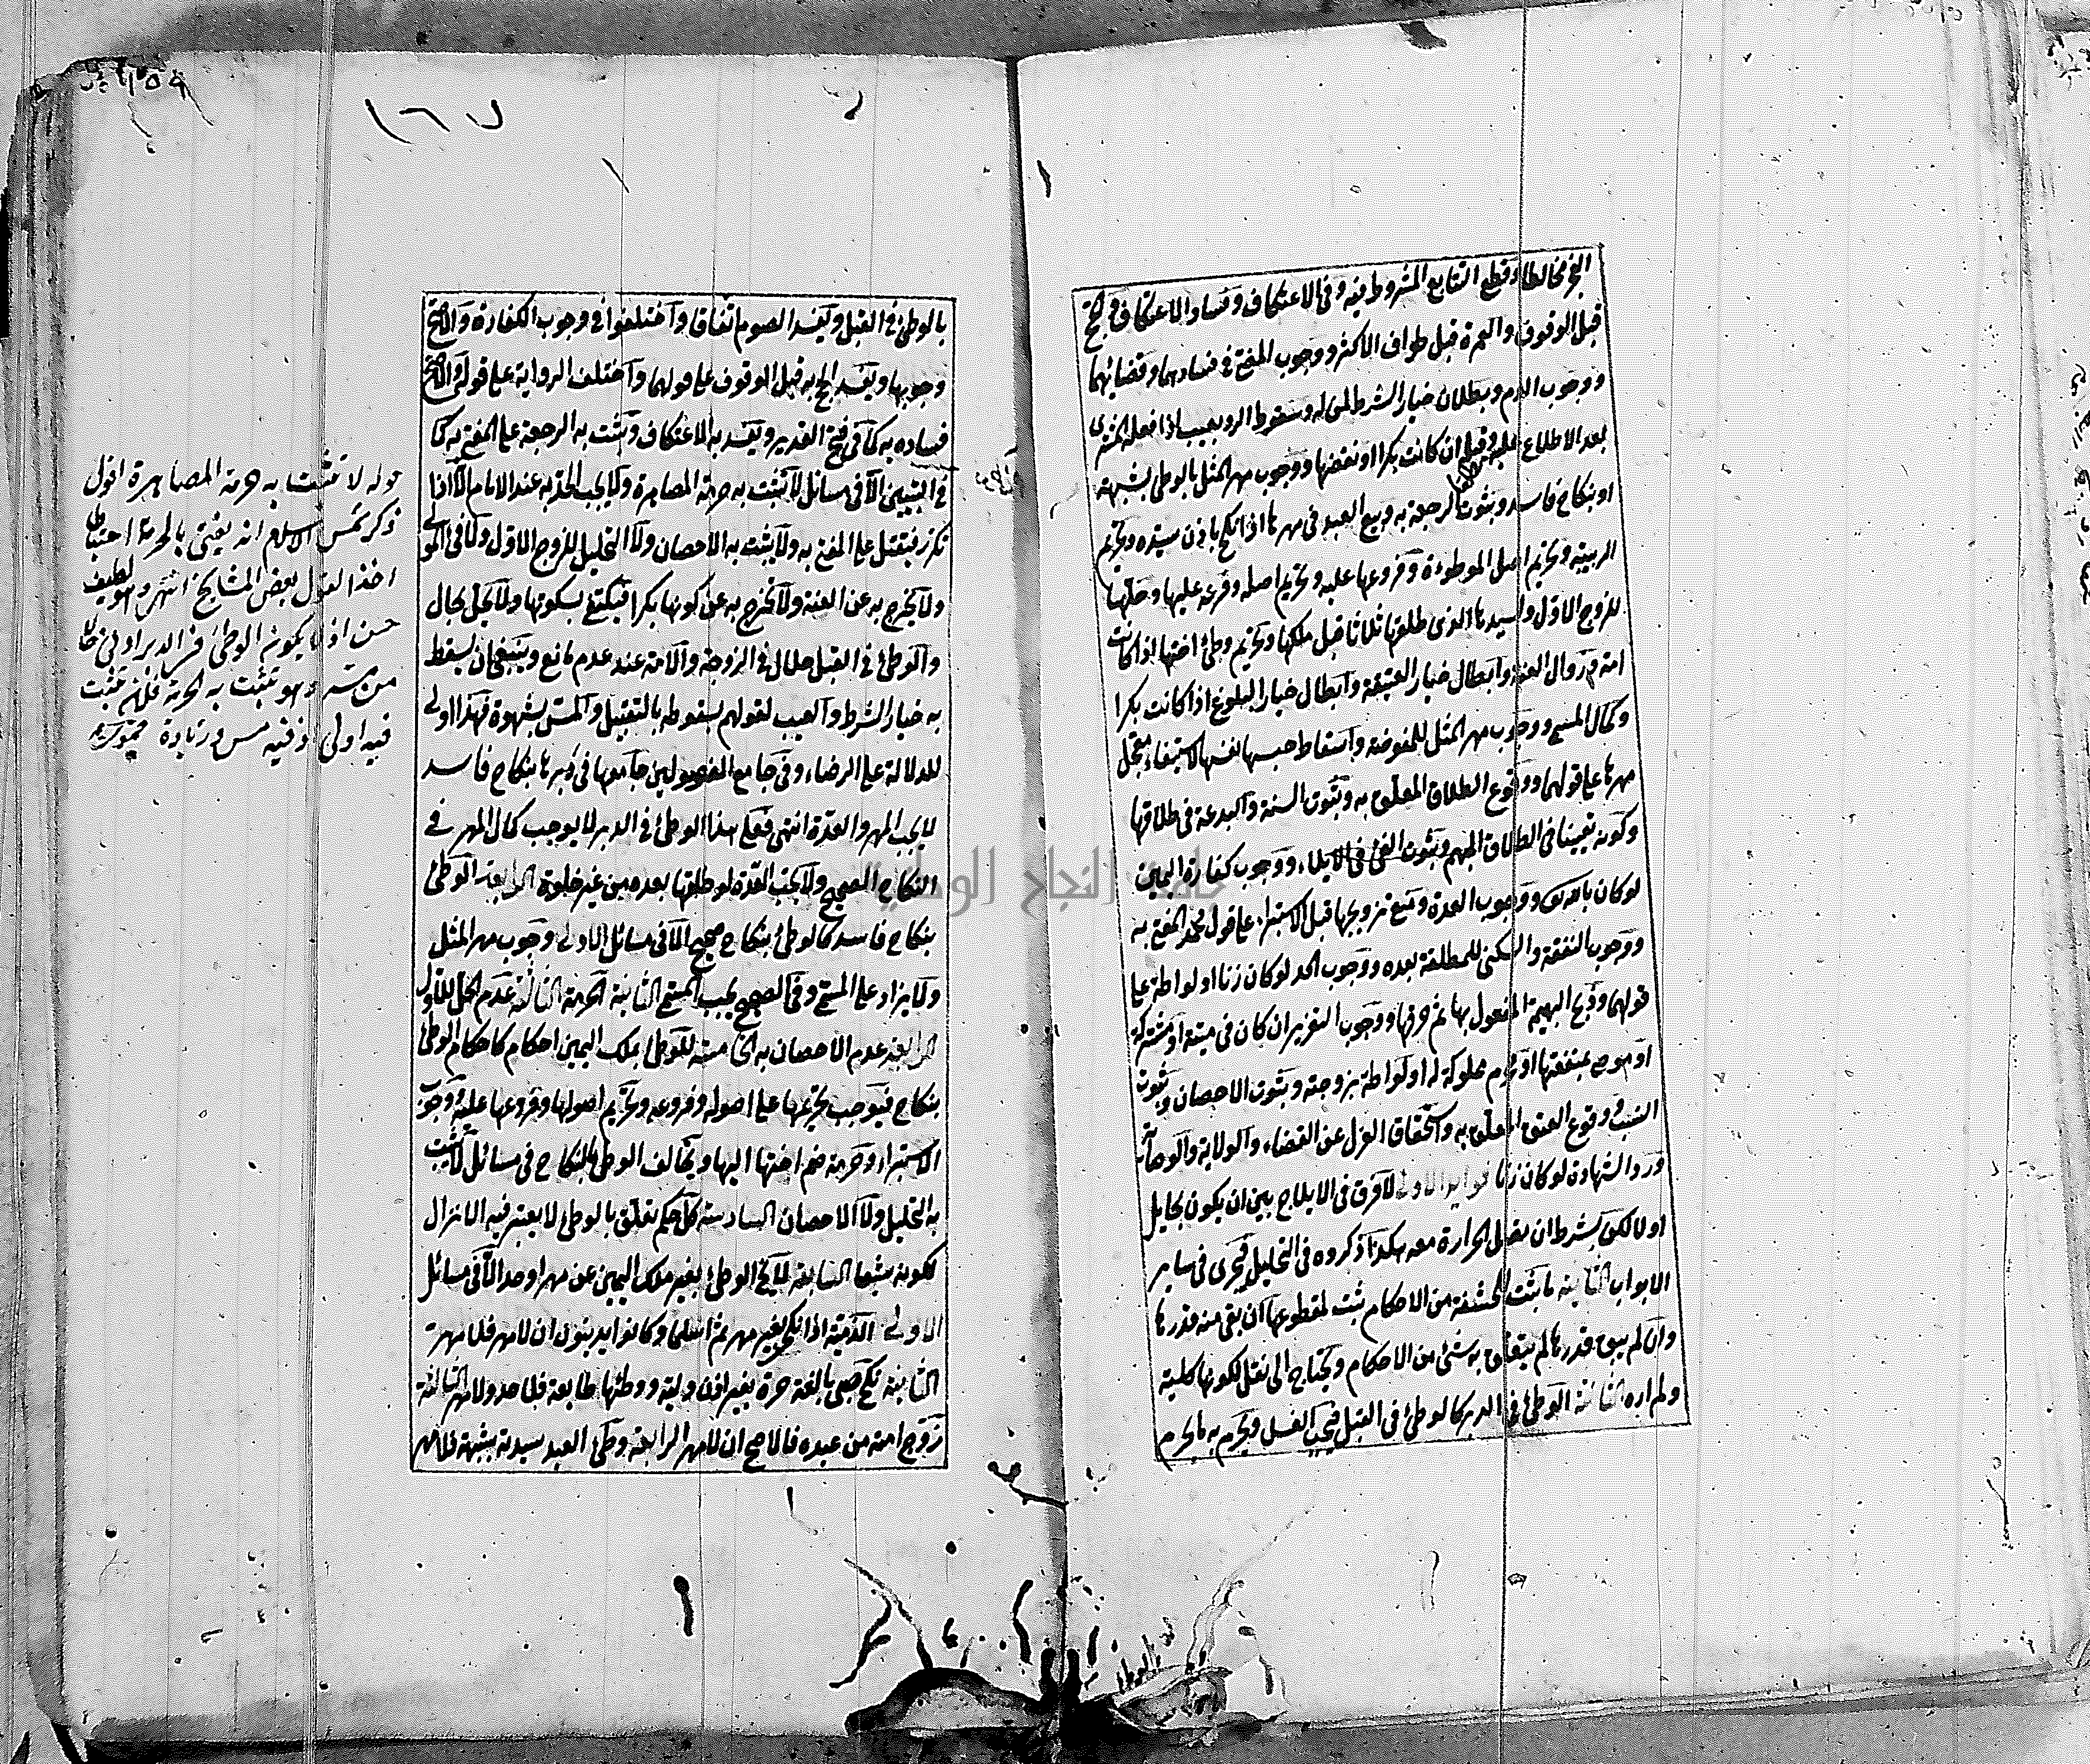 الفجر مخالطا وقطع التتابع المشروط فيه وفي الاعتكاف وفساد الاعتكاف والحج
قبل الوقوف والعمرة قبل طواف الاكثر ووجوب المضي في فسادهما وقضائهما
ووجوب الدم وبطلان خيار الشرط لمن له وسقوط الرد بعيب اذا فعله المشتري
بعد الاطلاع عليه وقبله ان كانت بكرا او نقصها ووجوب مهر المثل بالوطئ بشبهة
او بنكاح فاسد وثبوت الرجعة به وبيع العبد في مهرها اذا نكح باذن سيده وتحريم
الربيبة وتحريم اصل الموطوءة وفروعها عليه وتحريم اصله وفرعه عليها وحلها
للزوج الاول ولسيدها الذي طلقها ثلاثا قبل ملكها وتحريم وطئ اختها اذا كانت
امة وزوال العنة وابطال خيار العتيقة وابطال خيار البلوغ اذا كانت بكرا
وكمال المسمى ووجوب مهر المثل للمفوضة واسقاط حبسها نفسها لاستيفاء معجل
مهرها على قولهما ووقوع الطلاق المعلق به وثبوت السنة والبدعة في طلاقها
وكونه تعيينا في الطلاق المبهم وثبوت الفئ في الايلاء ووجوب كفارة اليمين
لو كان بالله ووجوب العدة ومنع تزويجها قبل الاستبراء على قول محمد المفتى به
ووجوب النفقة والسكنى للمطلقة بعده ووجوب الحد لو كان زنا او لواطة على
قولهما وذبح البهيمة المفعول بها ثم حرقها ووجوب التعزير ان كان في ميتة او مشتركة
او موصى بمنفعتها او محرم مملوكة له او لواطة بزوجته وثبوت الاحصان وثبوت
النسب ووقوع العتق المعلق به واستحقاق العزل عن القضاء والولاية والوصاية
ورد الشهادة لو كان زنا فوايد الاولى لا فرق في الايلاج بين ان يكون بحايل
او لا لكن بشرط ان تصل الحرارة معه هكذا ذكروه في التحليل فيجري في ساير
الابواب الثانية ما ثبت للحشفة من الاحكام ثبت لمقطوعها ان بقي منه قدرها
وان لم يبق قدرها لم يتعلق به شئ من الاحكام ويحتاج الى نقل لكونها كلية
ولم اره الثالثة الوطئ في الدبر كالوطئ في القبل فيجب الغسل ويحرم به ما يحرم
١٦٧
بالوطئ في القبل ويفسد الصوم اتفاقا واختلفوا في وجوب الكفارة والاصح
وجوبها ويفسد الحج به قبل الوقوف على قولهما واختلف الرواية على قوله والاصح
فساده به كما في فتح القدير ويفسد به الاعتكاف وتثبت به الرجعة على المفتى به كما
في التبيين الا في مسائل لا تثبت به حرمة المصاهرة ولا يجب الحد به عند الامام الا اذا
تكرر فيقتل على المفتى به ولا يثبت به الاحصان ولا التحليل للزوج الاول ولا في المولى
ولا يخرج به عن العنة ولا تخرج به عن كونها بكرا فيكتفى بسكوتها ولا يحل بحال
والوطئ في القبل حلال في الزوجة والامة عند عدم مانع وينبغي ان يسقط
به خيار الشرط والعيب لقولهم بسقوطه بالتقبيل والمس بشهوة فهذا اولى
للدلالة على الرضاء وفي جامع الفصولين جامعها في دبرها بنكاح فاسد
لا يجب المهر والعدة انتهى فعلم هذا الوطئ في الدبر لا يوجب كمال المهر في
النكاح الصحيح ولا يجب العدة لو طلقها بعده من غير خلوة الرابعة الوطئ
بنكاح فاسد كالوطئ بنكاح صحيح الا في مسائل الاولى وجوب مهر المثل
ولا يزاد على المسمى وفي الصحيح يجب المسمى الثانية الحرمة الثالثة عدم الحل للاول
الرابعة عدم الاحصان به الخامسة للوطئ بملك اليمين احكام كاحكام الوطئ
بنكاح فيوجب تحريمها على اصوله وفروعه وتحريم اصولها وفروعها عليه ووجوب
الاستبراء وحرمة ضم اختها اليها ويخالف الوطئ بالنكاح في مسائل لا يثبت
به التحليل ولا الاحصان السادسة كل حكم تعلق بالوطئ لا يعتبر فيه الانزال
لكونه تبعا السابعة لا يخلو الوطئ بغير ملك اليمين عن مهر او حد الا في مسائل
الاولى الذمية اذا نكحت بغير مهر ثم اسلما وكانوا يدينون ان لا مهر فلا مهر
الثانية نكح صبي بالغة حرة بغير اذن وليه ووطئها طايعة فلا حد ولا مهر الثالثة
زوج امته من عبده فالاصح ان لا مهر الرابعة وطئ العبد سيدته بشبهة فلا مهر
قوله لا تثبت به حرمة المصاهرة اقول
ذكر شمس الاسلام انه يفتى بالحرمة احتياطا
اخذا لقول بعض المشايخ انتهى وهو لطيف
حسن اذ لا يكون الوطئ في الدبر ادنى حالا
من مس وهو تثبت به الحرمة فلان تثبت
فيه اولى اذ فيه مس وزيادة
جامعة النجاح الوطنية